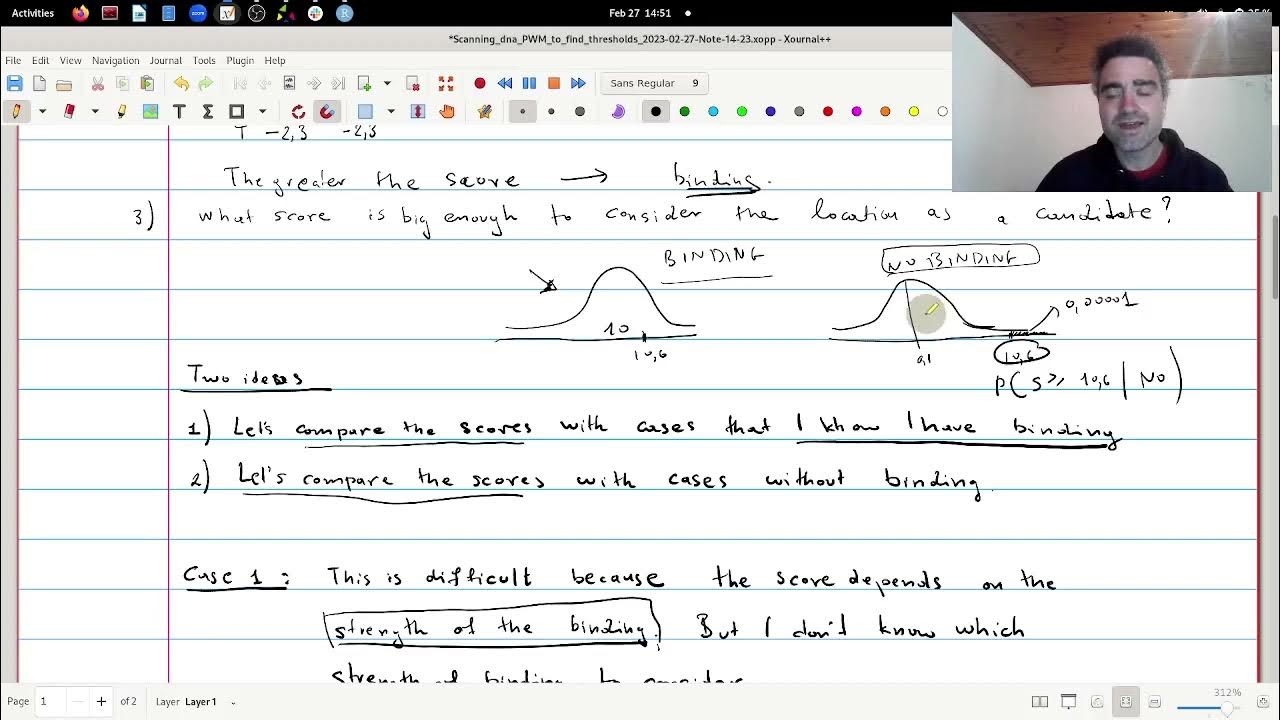 Activities
Feb 27 14:51
*Scanning_dna_PWM_to_find_thresholds_2023-02-27-Note-14-23.xopp - Xournal++
File Edit View Navigation Journal Tools Plugin Help
Sans Regular 9
T -2,3 -2,3
The greater the score → binding.
3) What score is big enough to consider the location as a candidate?
BINDING
NO BINDING
0,00001
10
10,6
0,1
10,6
P(S ≥ 10,6 | NO)
Two ideas
1) Let's compare the scores with cases that I know I have binding
2) Let's compare the scores with cases without binding.
Case 1: This is difficult because the score depends on the
strength of the binding. But I don't know which
strength of binding to consider
Page 1 of 2 Layer Layer 1
312%